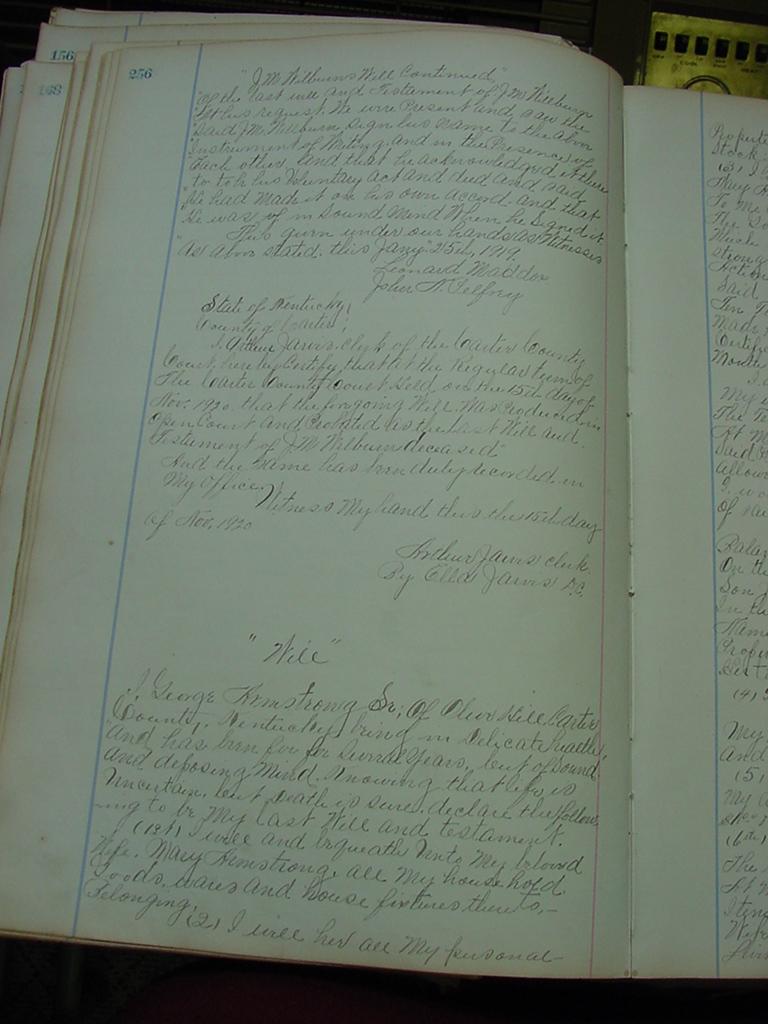 156
168
256
"J.M. Wilburns Will Continued"
"Of the last will and Testament of J.M. Wilburn
"At his request. We were Present and saw the
"Said J.M. Wilburn, sign his name to the above
"Instrument of Writing, and in the Presence of
Each other, and that he acknowledged it there
to be his Voluntary act and deed and said
"He had Made it on his own accord, and that
"He was of in Sound Mind When he signed it
"This given under our hands as Witnesses
"As above stated. this Jany" 25th, 1919.
Leonard Maddox
John H. Pelfrey
State of Kentucky,
County of Carter,
I, Arthur Jarvis, clerk of the Carter County
Court, hereby Certify, that at the Regular term of
The Carter County Court held, on the 15th day of
Nov. 1920, that the foregoing Will, Was Produced in
Open Court and Probated as the Last Will and
Testament of J.M. Wilburn deceased"
And the same has been duly recorded in
My Office.
Witness My hand this the 15th day
of Nov, 1920
Arthur Jarvis clerk
By Ella Jarvis D.C.
"Will"
I, George Armstrong Sr; Of Olive Hill Carter
County, Kentucky, being in Delicate health,
and has been for several Years, but of sound
and disposing Mind. Knowing that life is
Uncertain, but Death is sure, declare the follow
-ing to be My Last Will and testament.
(1st) I will and bequeath Unto My beloved
Wife, Mary Armstrong, all My household
Goods, wares and house fixtures thereto,-
Belonging,
(2) I will her all My personal
Stock.
(3) I
Mary A
To Me
The So
Much
strong
Action
Said
Ten
Made
Certifi
Month
My
The
At M
Said
allow
I
of
Balan
On th
Son J
In th
Name
Prope
(4)
My
And
(5)
My
(6th)
The
At
Item
Wife